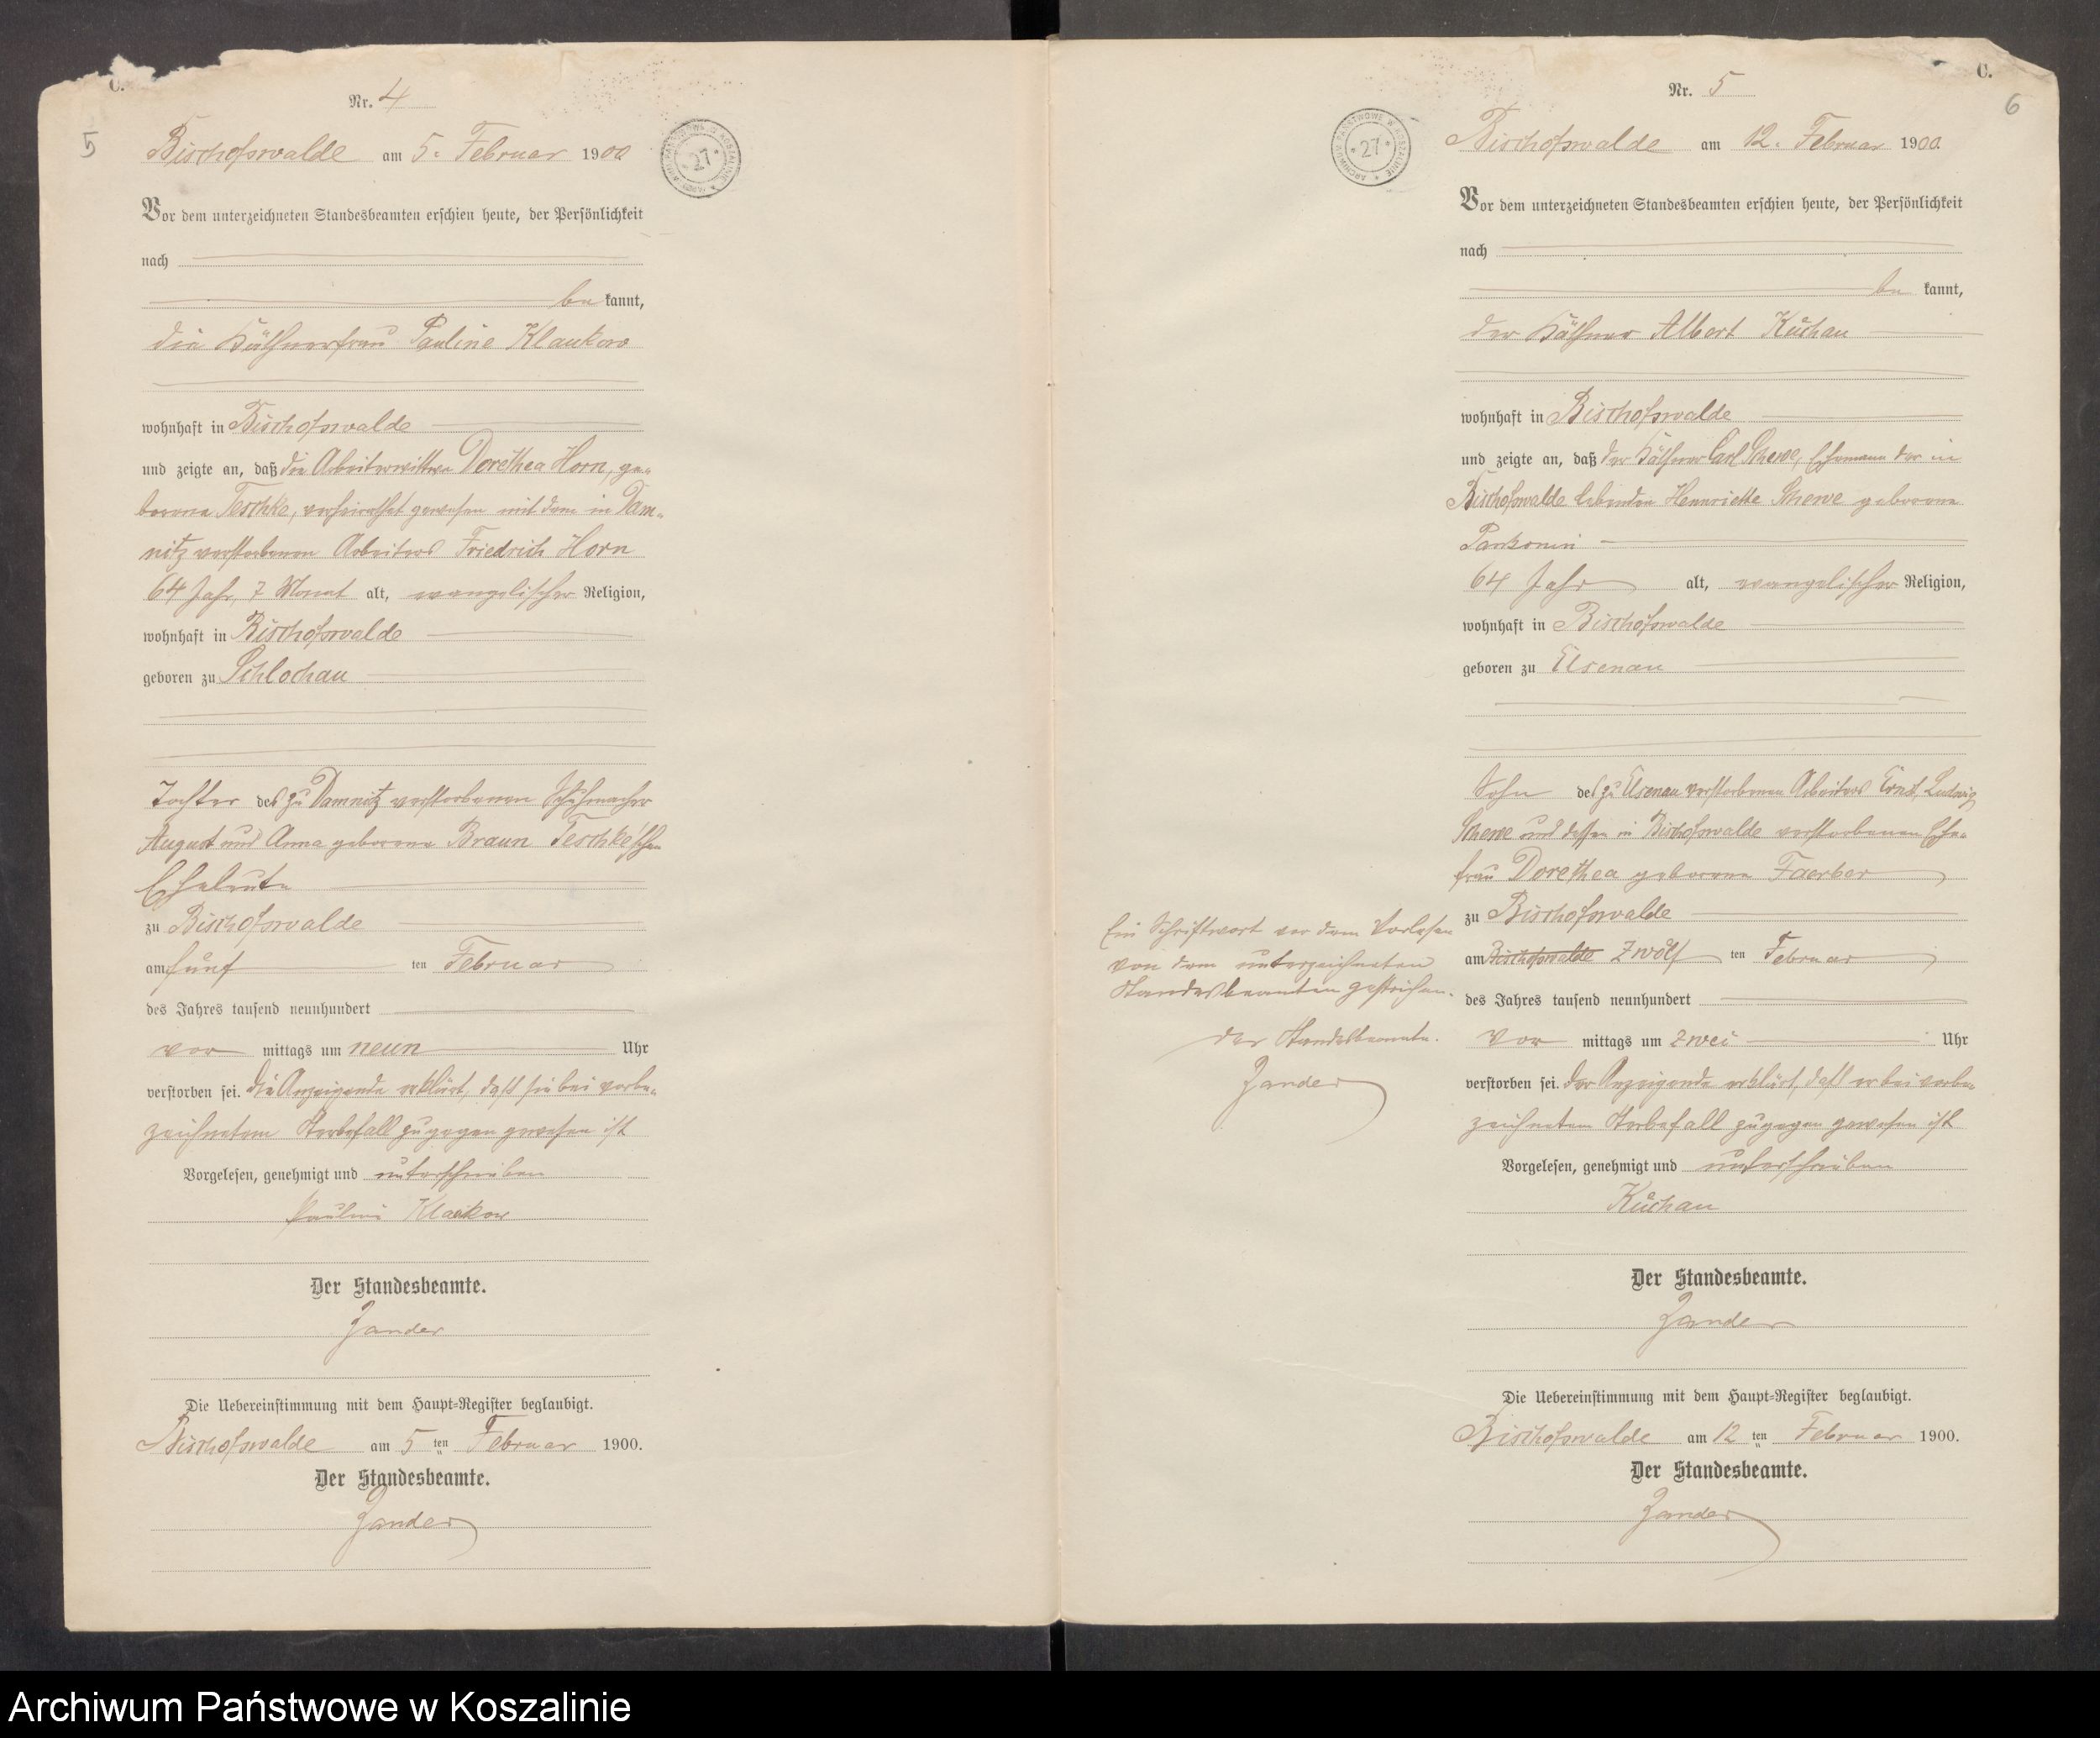 C.
Nr. 4
5
Bischofswalde am 5. Februar 1900
ARCHIWUM PAŃSTWOWE W KOSZALINIE * 27 *
Vor dem unterzeichneten Standesbeamten erschien heute, der Persönlichkeit
nach
be kannt,
die Käthnerfrau Pauline Klaukow
wohnhaft in Bischofswalde
und zeigte an, daß die Arbeiterwittwe Dorethea Horn, ge-
borene Teschke, verheirathet gewesen mit dem in Dam-
nitz verstorbenen Arbeiters Friedrich Horn
64 Jahr, 7 Monat alt, evangelischer Religion,
wohnhaft in Bischofswalde
geboren zu Schlochau
Tochter des zu Damnitz verstorbenen Schuhmacher
August und Anna geborene Braun Teschke'schen
Eheleute
zu Bischofswalde
am fünf ten Februar
des Jahres tausend neunhundert
vor mittags um neun Uhr
verstorben sei. Die Anzeigende erklärt, daß sie bei vorbe-
zeichnetem Sterbefall zugegen gewesen ist
Vorgelesen, genehmigt und unterschrieben
Der Standesbeamte.
Zander
Die Uebereinstimmung mit dem Haupt-Register beglaubigt.
Bischofswalde am 5 ten Februar 1900.
Der Standesbeamte.
Zander
C.
Nr. 5
6
Bischofswalde am 12. Februar 1900
ARCHIWUM PAŃSTWOWE W KOSZALINIE * 27 *
Vor dem unterzeichneten Standesbeamten erschien heute, der Persönlichkeit
nach
be kannt,
der Käthner Albert Kuchau
wohnhaft in Bischofswalde
und zeigte an, daß der Käthner Carl Schewe, Ehemann der in
Bischofswalde lebenden Henriette Schewe geborene
64 Jahr alt, evangelischer Religion,
wohnhaft in Bischofswalde
geboren zu Elsenau
Sohn des zu Elsenau verstorbenen Arbeiters Ernst Ludwig
Schewe und dessen in Bischofswalde verstorbenen Ehe-
frau Dorethea geborene Faerber
zu Bischofswalde
am Bischofswalde Zwölf ten Februar
des Jahres tausend neunhundert
Vor mittags um zwei Uhr
verstorben sei. Der Anzeigende erklärt, daß er bei vorbe-
zeichnetem Sterbefall zugegen gewesen ist
Vorgelesen, genehmigt und unterschrieben
Kuchau
Der Standesbeamte.
Zander
Die Uebereinstimmung mit dem Haupt-Register beglaubigt.
Bischofswalde am 12 ten Februar 1900.
Der Standesbeamte.
Zander
Ein Schriftwort vor dem Vorlesen
von dem unterzeichneten
Standesbeamten gestrichen.
Der Standesbeamte.
Zander
Archiwum Państwowe w Koszalinie